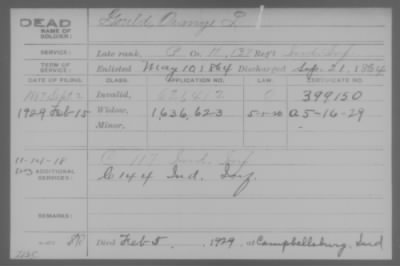 DEAD
NAME OF SOLDIER: Gould, L.
SERVICE: Late rank, P Co. H, 137 Reg't Ind. Inf.
TERM OF SERVICE: Enlisted May 10, 1864 Discharged Sep. 21, 1864
DATE OF FILING. CLASS. APPLICATION NO. LAW. CERTIFICATE NO.
1887 Sept 2 Invalid, C 399150
1929 Feb-15 Widow, 1636,623 5-1-20 a5-16-29
Minor, -
11-141-18 C 117 Ind. Inf.
ADDITIONAL SERVICES: C 144 Ind. Inf.
REMARKS:
Died Feb 5, 1929, at Campbellsburg, Ind